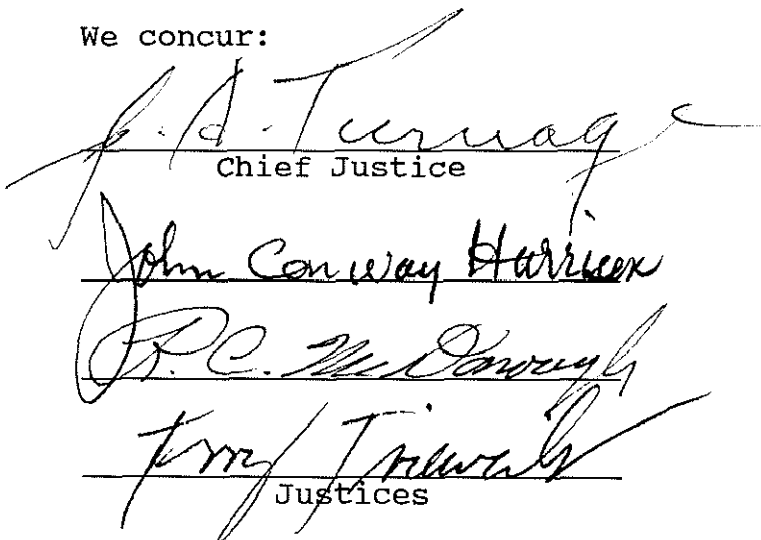 We concur:
J. A. Turnage
Chief Justice
John Conway Harrison
R. C. McDonough
Terry Trieweiler
Justices